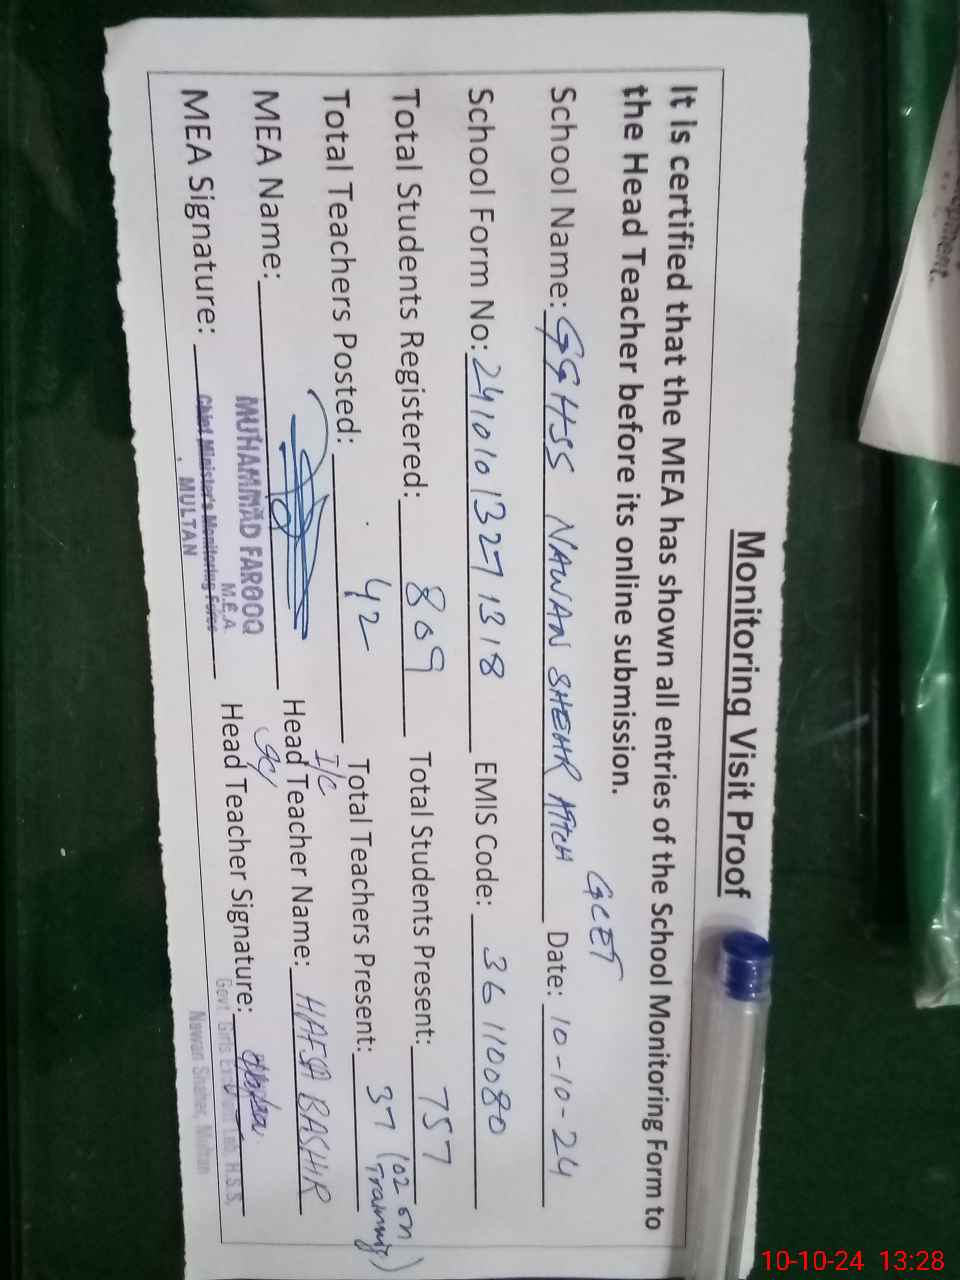 Monitoring Visit Proof
It is certified that the MEA has shown all entries of the School Monitoring Form to
the Head Teacher before its online submission.
GCET
School Name: GGHSS NAWAN SHEHR Attch Date: 10-10-24
School Form No: 2410101327 1318 EMIS Code: 36110080
Total Students Registered: 809 Total Students Present: 757
Total Teachers Posted: 42 Total Teachers Present: 37 (02 on Training)
I/C
MEA Name: Head Teacher Name: HAFSA BASHIR
MUHAMMAD FAROOQ
M.E.A
Chief Minister's Monitoring Force
MULTAN
MEA Signature: Head Teacher Signature:
Govt. Girls H.S.S,
Nawan Shaher, Multan
10-10-24 13:28